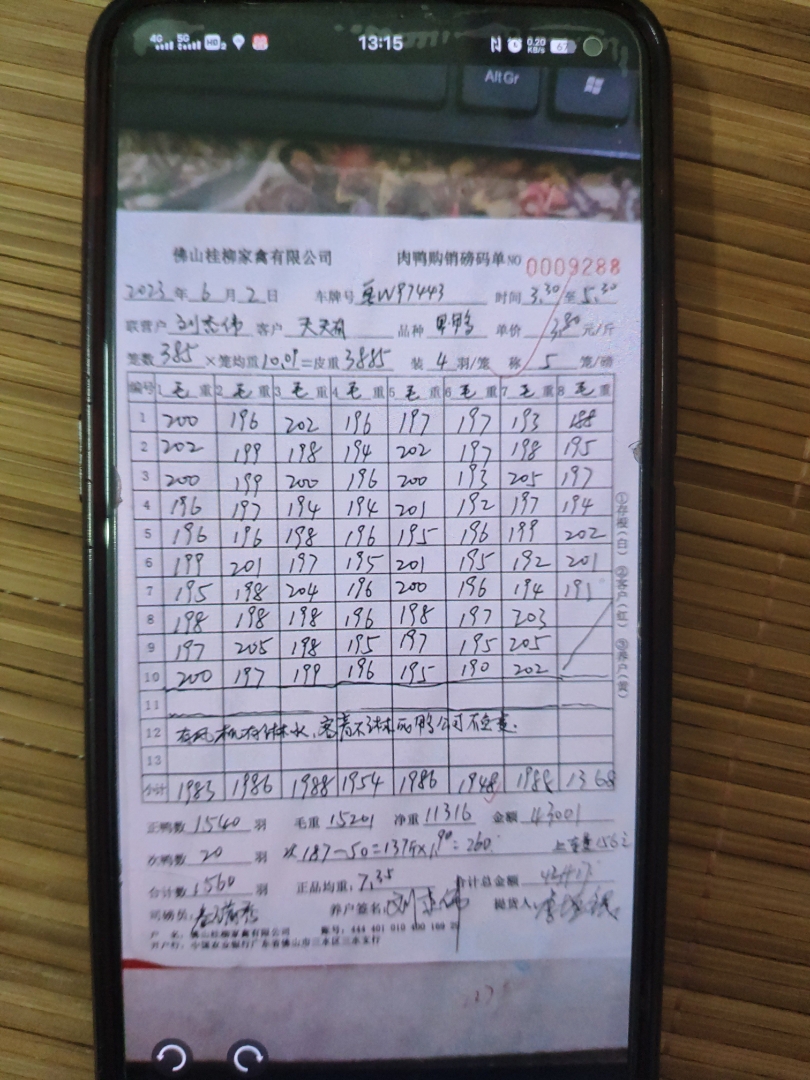 4G 5G HD2 13:15 0.20 KB/s 67
Alt Gr
佛山桂柳家禽有限公司 肉鸭购销磅码单 NO 0009288
2023 年 6 月 2 日 车牌号 W97443 时间 3.30 至 5.30
联营户 刘志伟 客户 天天 品种 鸭 单价 3.80 元/斤
笼数 385 × 笼均重 10.09 = 皮重 3885 装 4 羽/笼 称 5 笼/磅
编号 1 毛 重 2 毛 重 3 毛 重 4 毛 重 5 毛 重 6 毛 重 7 毛 重 8 毛 重
1 200 196 202 196 197 197 193 188
2 202 199 198 194 202 197 198 195
3 200 199 200 196 200 193 205 197
4 196 197 194 194 201 192 197 194
5 196 196 198 196 195 196 199 202
6 199 201 197 195 201 195 192 201
7 195 198 204 196 200 196 194 191
8 198 198 198 196 198 197 203
9 197 205 198 195 197 195 205
10 200 197 199 196 195 190 202
11
12 有风机有淋水,客 不淋 鸭公司不负责.
13
小计 1983 1986 1988 1954 1986 1948 1988 1368
正鸭数 1540 羽 毛重 15201 净重 11316 金额 43001
次鸭数 20 羽 次 187-50=137斤×1.90=260
合计数 1560 羽 正品均重: 7.35 合计总金额
司磅员: 养户签名: 刘志伟 提货人:
户 名: 佛山桂柳家禽有限公司 账号: 444 401 010 400 169
开户行: 中国农业银行广东省佛山市三水区三水支行
①存根(白) ②客户(红) ③养户(黄)